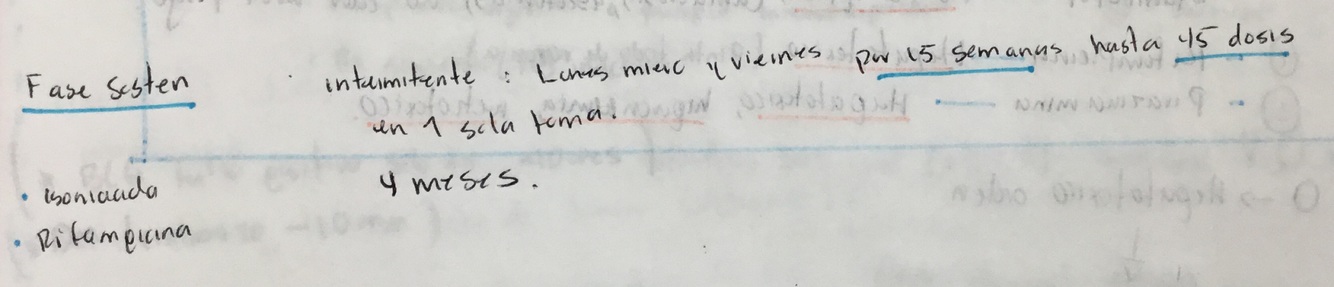 Fase Sosten
intermitente : Lunes mierc y viernes por 15 semanas hasta 45 dosis
en 1 sola toma.
4 meses.
• Isoniacida
• Rifampicina